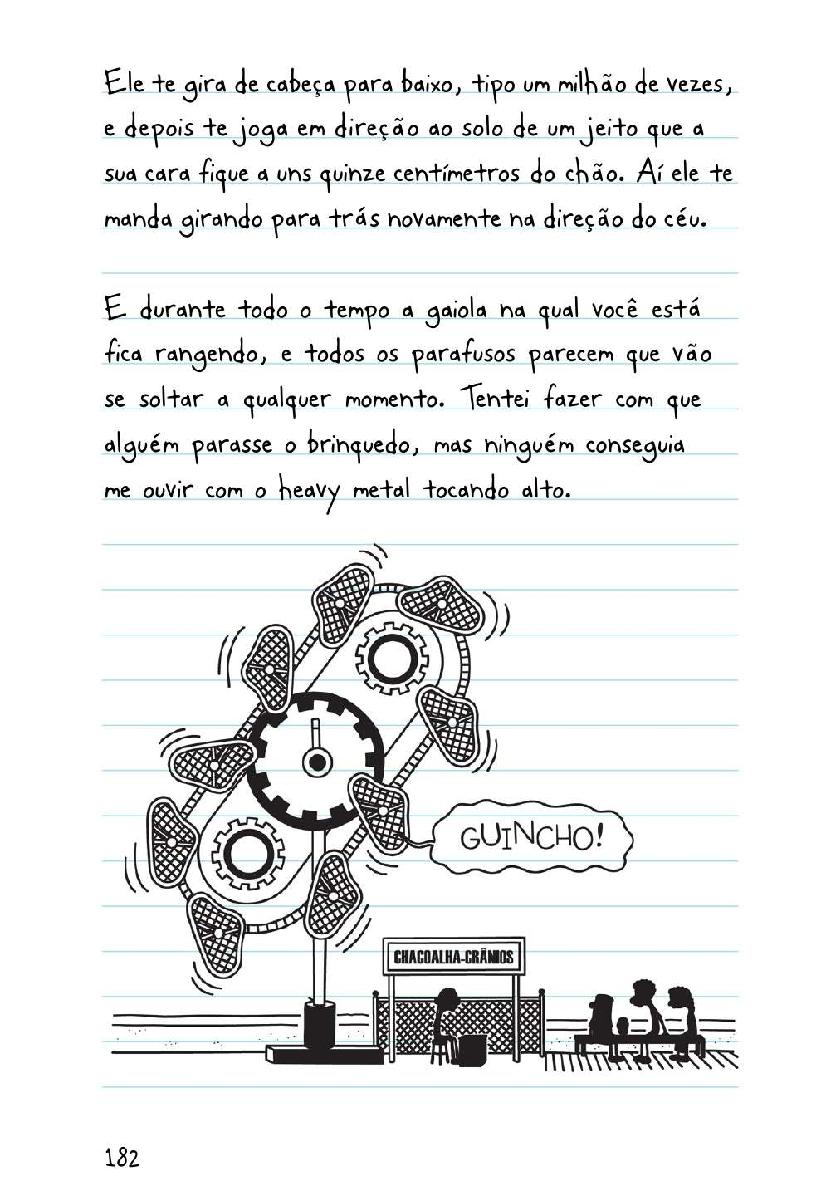 Ele te gira de cabeça para baixo, tipo um milhão de vezes,
e depois te joga em direção ao solo de um jeito que a
sua cara fique a uns quinze centímetros do chão. Aí ele te
manda girando para trás novamente na direção do céu.
E durante todo o tempo a gaiola na qual você está
fica rangendo, e todos os parafusos parecem que vão
se soltar a qualquer momento. Tentei fazer com que
alguém parasse o brinquedo, mas ninguém conseguia
me ouvir com o heavy metal tocando alto.
GUINCHO!
CHACOALHA-CRÂNIOS
182